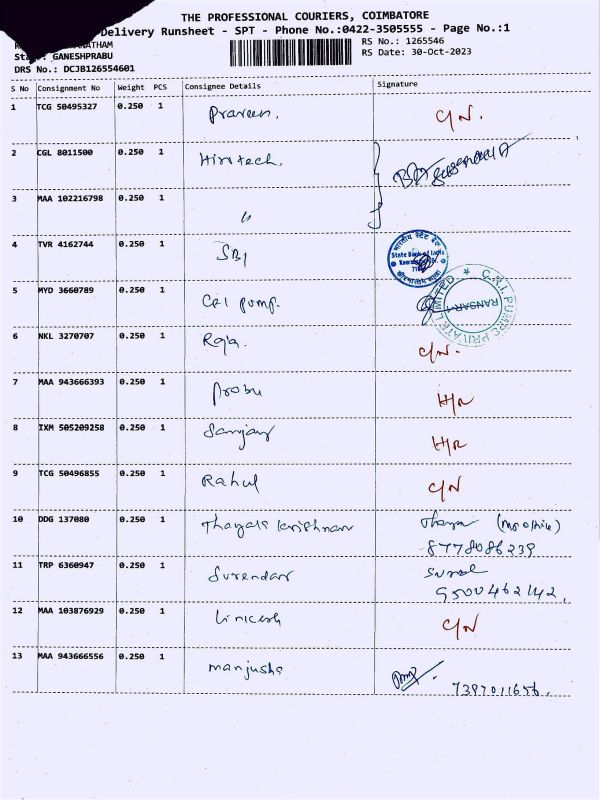 THE PROFESSIONAL COURIERS, COIMBATORE
Delivery Runsheet - SPT - Phone No.:0422-3505555 - Page No.:1
RS No.: 1265546
: GANESHPRABU
RS Date: 30-Oct-2023
DRS No.: DCJB126554601
S No Consignment No Weight PCS Consignee Details Signature
1 TCG 50495327 0.250 1 Praveen. C/N.
2 CGL 8011500 0.250 1 Hirotech.
3 MAA 102216798 0.250 1 "
4 TVR 4162744 0.250 1 SBI
भारतीय स्टेट बैंक
State Bank of India
5 MYD 3660789 0.250 1 CRI pump.
C.R.I. PUMPS PRIVATE LIMITED
6 NKL 3270707 0.250 1 Raja. C/N.
7 MAA 943666393 0.250 1 Prabu H/R
8 IXM 505209258 0.250 1 Sanjay H/R
9 TCG 50496855 0.250 1 Rahul C/N
10 DDG 137080 0.250 1 Thayala krishnan
8778086239
11 TRP 6360947 0.250 1 Surendar
9500462142.
12 MAA 103876929 0.250 1 C/N
13 MAA 943666556 0.250 1 manjusha
7397011656.